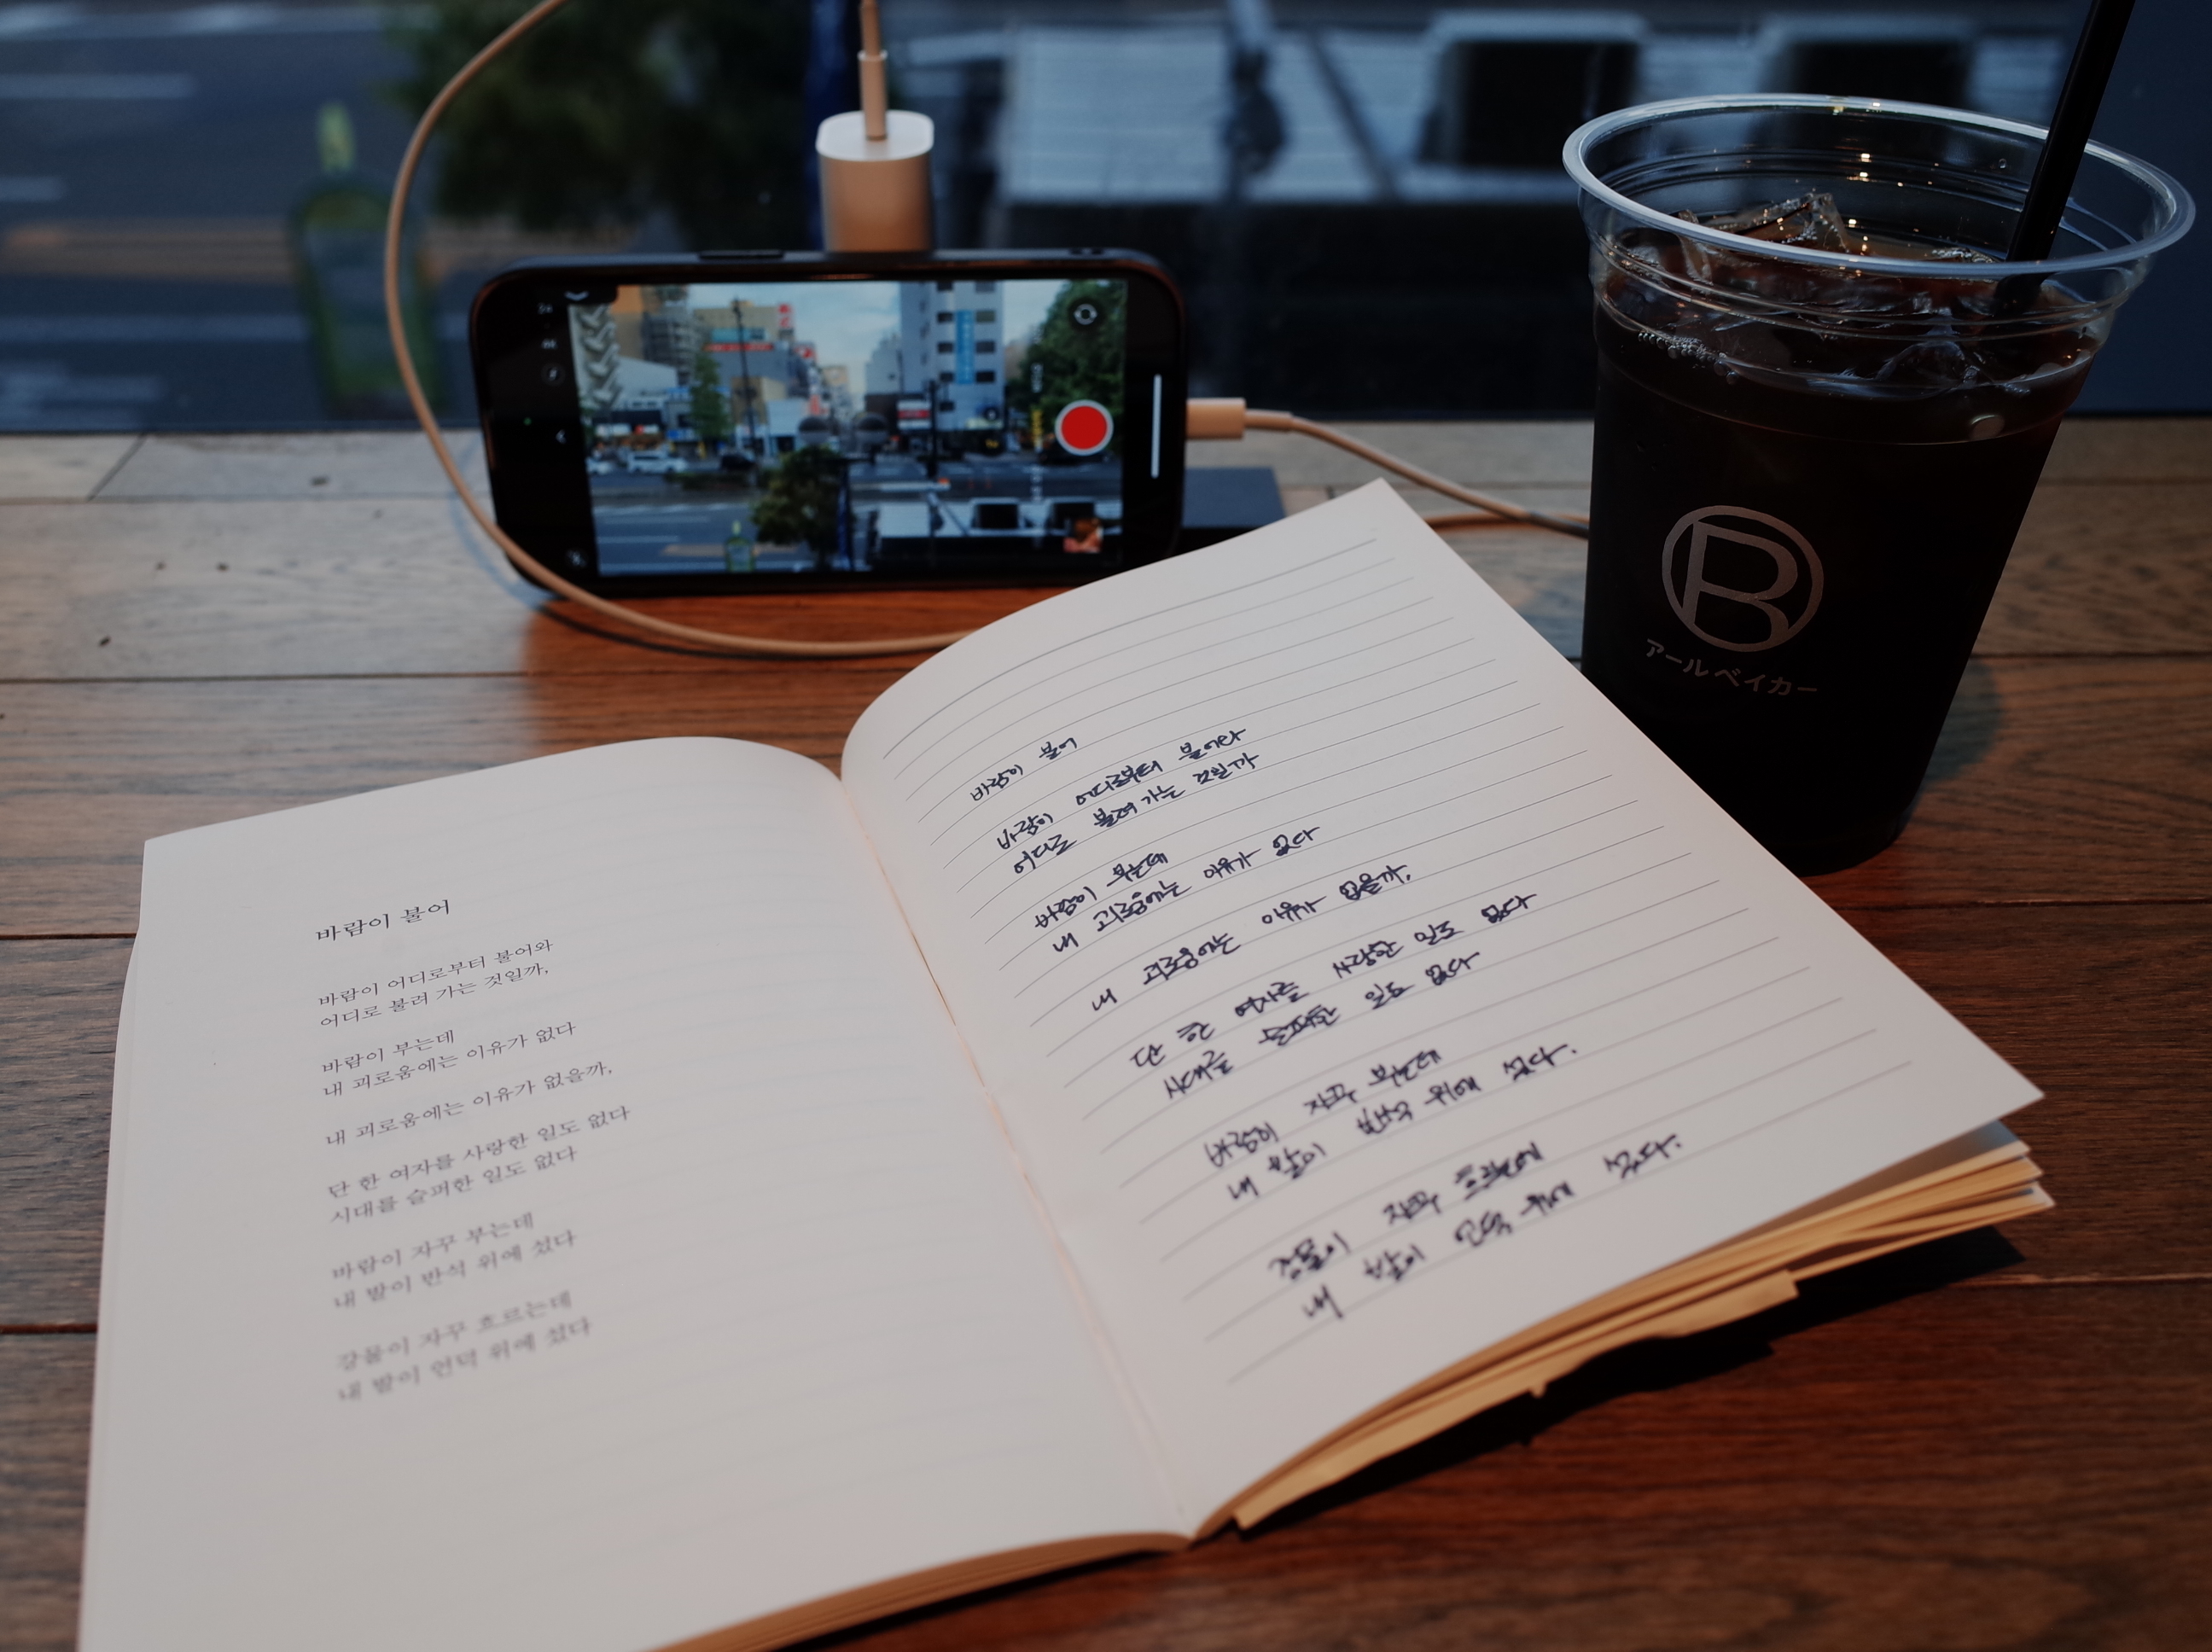 바람이 불어
바람이 어디로부터 불어와
어디로 불려 가는 것일까,
바람이 부는데
내 괴로움에는 이유가 없다
내 괴로움에는 이유가 없을까,
단 한 여자를 사랑한 일도 없다
시대를 슬퍼한 일도 없다
바람이 자꾸 부는데
내 발이 반석 위에 섰다
강물이 자꾸 흐르는데
내 발이 언덕 위에 섰다
바람이 불어
바람이 어디로부터 불어와
어디로 불려 가는 것일까
바람이 부는데
내 괴로움에는 이유가 없다
내 괴로움에는 이유가 없을까,
단 한 여자를 사랑한 일도 없다
시대를 슬퍼한 일도 없다
바람이 자꾸 부는데
내 발이 반석 위에 섰다.
강물이 자꾸 흐르는데
내 발이 언덕 위에 섰다.
B
アールベイカー